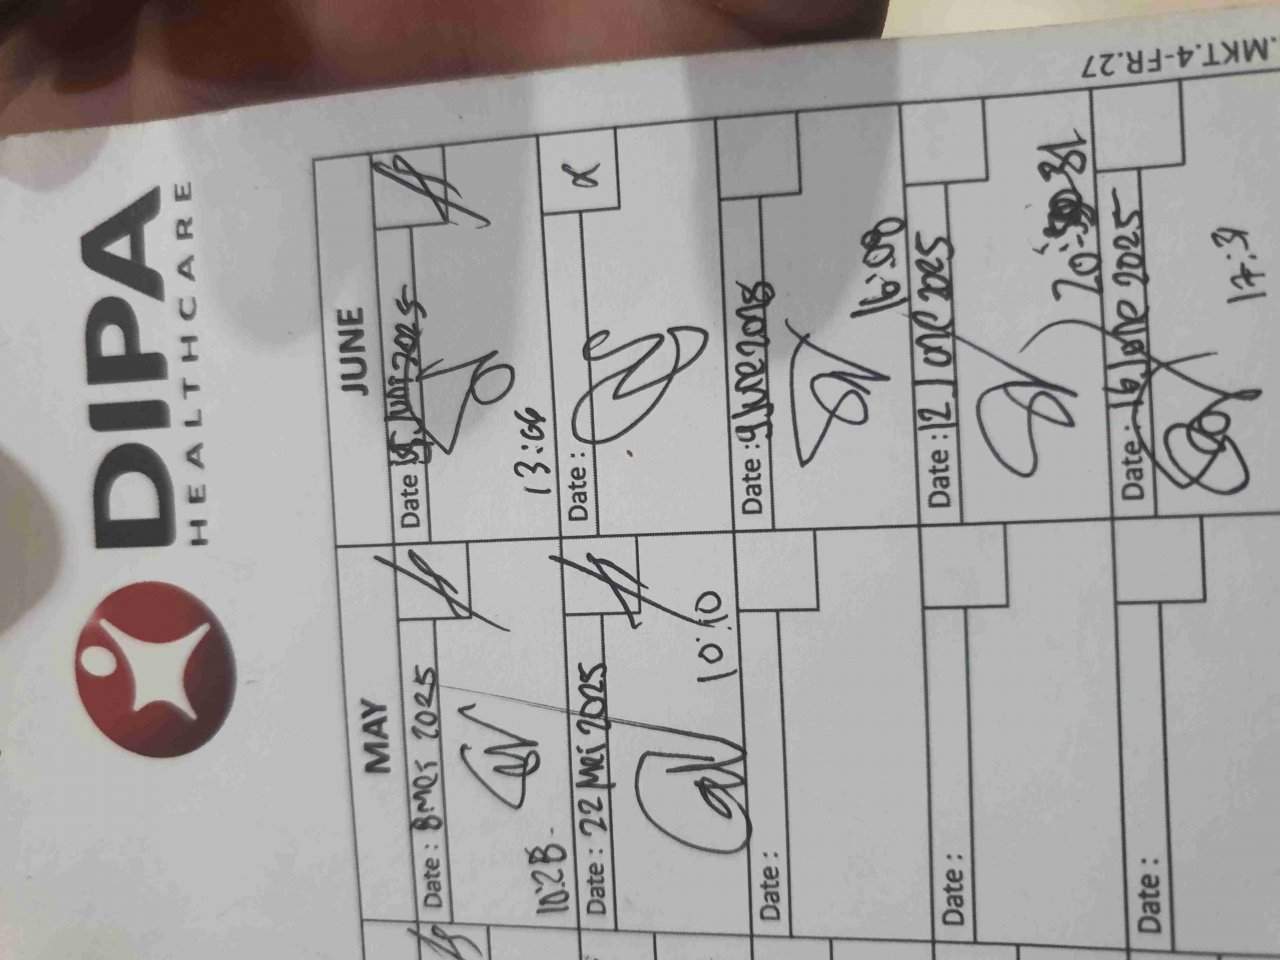 DIPA
HEALTHCARE
MAY
JUNE
Date : 8 Mei 2025
10:28
Date : 5 Juni 2025
13:06
Date : 22 Mei 2025
10:10
Date :
Date :
Date : 9 June 2025
16:00
Date :
Date : 12 June 2025
20:31
Date :
Date : 16 June 2025
17:31
.MKT.4-FR.27